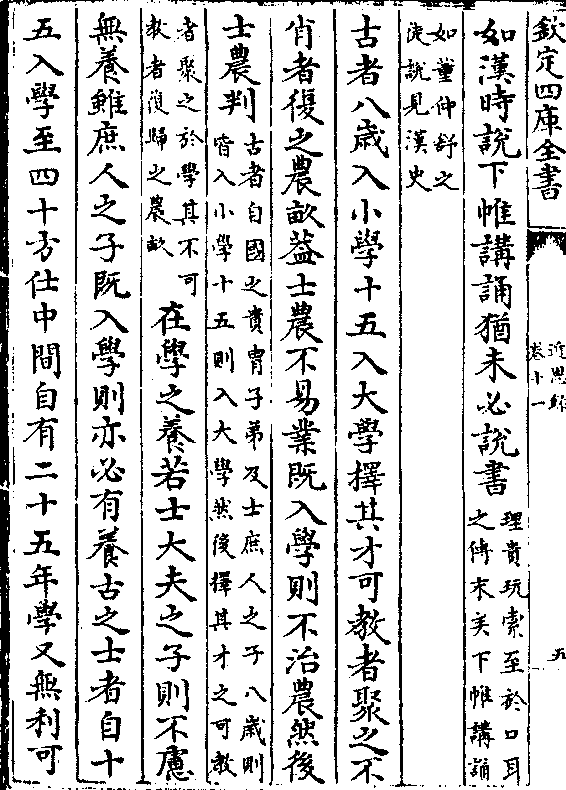 欽定四庫全書
近思錄
卷十一
五
如漢時說下帷講誦猶未必說書
理貴玩索至於口耳
之傳末矣下帷講誦
如董仲舒之
徒說見漢史
古者八歲入小學十五入大學擇其才可教者聚之不
肖者復之農畝蓋士農不易業既入學則不治農然後
士農判
古者自國之貴胄子弟及士庶人之子八歲則
皆入小學十五則入大學然後擇其才之可教
者聚之於學其不可
教者復歸之農畝
在學之養若士大夫之子則不慮
無養雖庶人之子既入學則亦必有養古之士者自十
五入學至四十方仕中間自有二十五年學又無利可